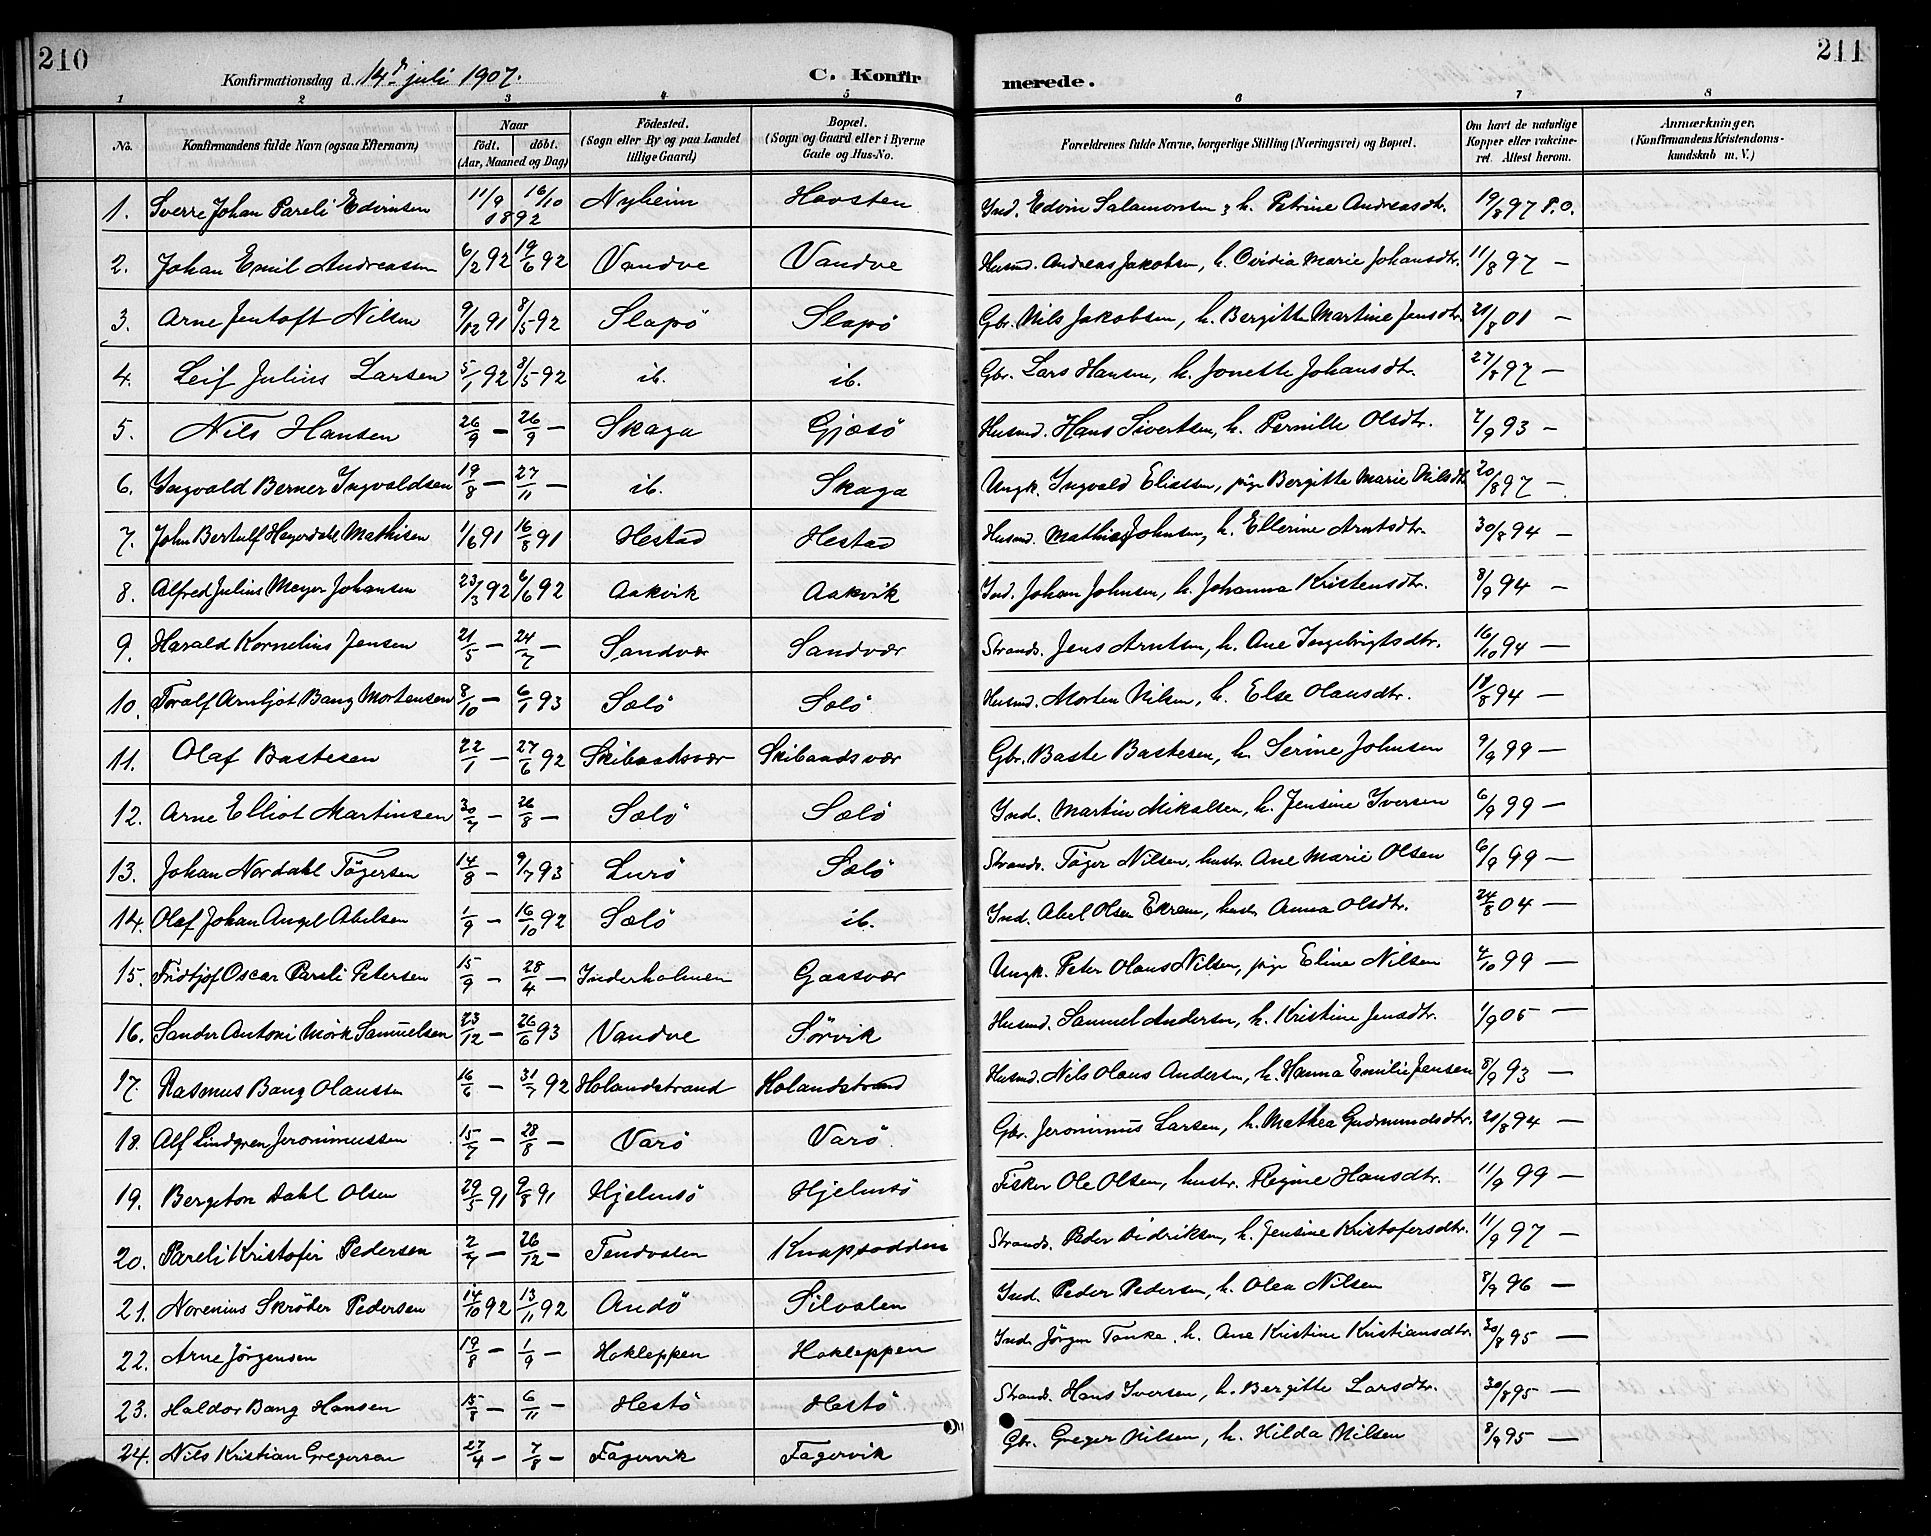 210
211
Konfirmationsdag d. 14de juli 1907.
C. Konfirmerede.
1 2 3 4 5 6 7 8
No.
Konfirmandens fulde Navn (ogsaa Efternavn)
Naar
födt. döbt.
(Aar, Maaned og Dag)
Födested.
(Sogn eller By og paa Landet
tillige Gaard)
Bopæl.
(Sogn og Gaard eller i Byerne
Gade og Hus-No.
Forældrenes fulde Navne, borgerlige Stilling (Næringsvei) og Bopæl.
Om havt de naturlige
Kopper eller vakcine-
ret. Attest herom.
Anmærkninger.
(Konfirmandens Kristendoms-
kundskab m. V.)
1. Sverre Johan Pareli Edvinsen 11/9 16/10 1892 Nyheim Havsten Ind. Edvin Salamonsen, h. Petrine Andreasdtr. 19/8 97 P.O.
2. Johan Emil Andreasen 6/2 92 19/6 92 Vandve Vandve Husmd. Andreas Jakobsen, h. Ovidia Marie Johansdtr. 11/8 97 —
3. Arne Jentoft Nilsen 9/12 91 8/5 92 Slapö Slapö Gbr. Nils Jakobsen, h. Bergitte Martine Jensdtr. 21/8 01 —
4. Leif Julius Larsen 5/1 92 8/5 92 ib. ib. Gbr. Lars Hansen, h. Jonette Johansdtr. 27/8 97 —
5. Nils Hansen 26/9 — 26/9 — Skaga Gjæsö Husmd. Hans Sivertsen, h. Pernille Olsdtr. 7/9 93 —
6. Yngvald Berner Ingvaldsen 19/8 — 27/11 — ib. Skaga Ungk. Ingvald Eliassen, pige Bergitte Marie Nilsdtr. 20/8 97 —
7. John Bertulf Heyerdahl Mathisen 1/6 91 16/8 91 Hestad Hestad Husmd. Mathias Johnsen, h. Ellerine Arntsdtr. 30/8 94 —
8. Alfred Julius Meyer Johansen 23/3 92 6/6 92 Aakvik Aakvik Ind. Johan Johnsen, h. Johanna Kristensdtr. 8/9 94 —
9. Harald Kornelius Jensen 21/5 — 24/7 — Sandvær Sandvær Strands. Jens Arntsen, h. Ane Ingebrigtsdtr. 16/10 94 —
10. Toralf Arnljot Bang Mortensen 8/10 — 6/1 93 Sælö Sælö Husmd. Morten Nilsen, h. Else Olausdtr. 18/8 94 —
11. Olaf Bastesen 22/1 — 27/6 92 Skibaadsvær Skibaadsvær Gbr. Baste Bastesen, h. Serine Johnsen 9/9 99 —
12. Arne Elliot Martinsen 30/7 — 26/8 — Sælö Sælö Ind. Martin Mikalsen, h. Jensine Iversen 6/9 99 —
13. Johan Nordahl Tögersen 14/8 — 9/7 93 Lurö Sælö Strands. Töger Nilsen, hustr. Ane Marie Olsen 6/9 99 —
14. Olaf Johan Angel Abelsen 1/9 — 16/10 92 Sælö ib. Ind. Abel Olsen Ekrem, hustr. Anna Olsdtr. 24/8 04 —
15. Fridtjof Oscar Pareli Petersen 15/9 — 28/4 — Inderholmen Gaasvær Ungk. Peter Olaus Nilsen, pige Eline Nilsen 4/10 99 —
16. Sander Antoni Mörk Samuelsen 23/12 — 26/6 93 Vandve Sörvik Husmd. Samuel Andersen, h. Kristine Jensdtr. 1/9 05 —
17. Rasmus Bang Olaussen 16/6 — 31/7 92 Holandstrand Holandstrand Husmd. Nils Olaus Andersen, h. Hanna Emilie Jensen 8/9 93 —
18. Alf Lindgren Jeronimussen 15/7 — 28/8 — Varö Varö. Gbr. Jeronimus Larsen, h. Mathea Gudmundsdtr. 21/8 94 —
19. Bergeton Dahl Olsen 29/5 91 9/8 91 Hjelmsö Hjelmsö Fisker Ole Olsen, hustr. Regine Hansdtr. 11/9 99 —
20. Pareli Kristofer Pedersen 2/7 — 26/12 — Tendvalen Knapsodden Strands. Peder Didriksen, h. Jensine Kristofersdtr. 11/9 97 —
21. Norenius Skröder Pedersen 14/10 92 13/11 92 Andö Silvalen Ind. Peder Pedersen, h. Olea Nilsen 8/9 96 —
22. Arne Jörgensen 19/8 — 1/9 — Hokleppen Hokleppen Ind. Jörgen Tanke, h. Ane Kristine Kristiansdtr. 30/8 95 —
23. Haldor Bang Hansen 15/8 — 6/11 — Hestö Hestö Strands. Hans Iversen, h. Bergitte Larsdtr. 30/8 95 —
24. Nils Kristian Gregersen 27/4 — 7/8 — Fagervik Fagervik Gbr. Greger Nilsen, h. Hilda Nilsen 8/9 95 —